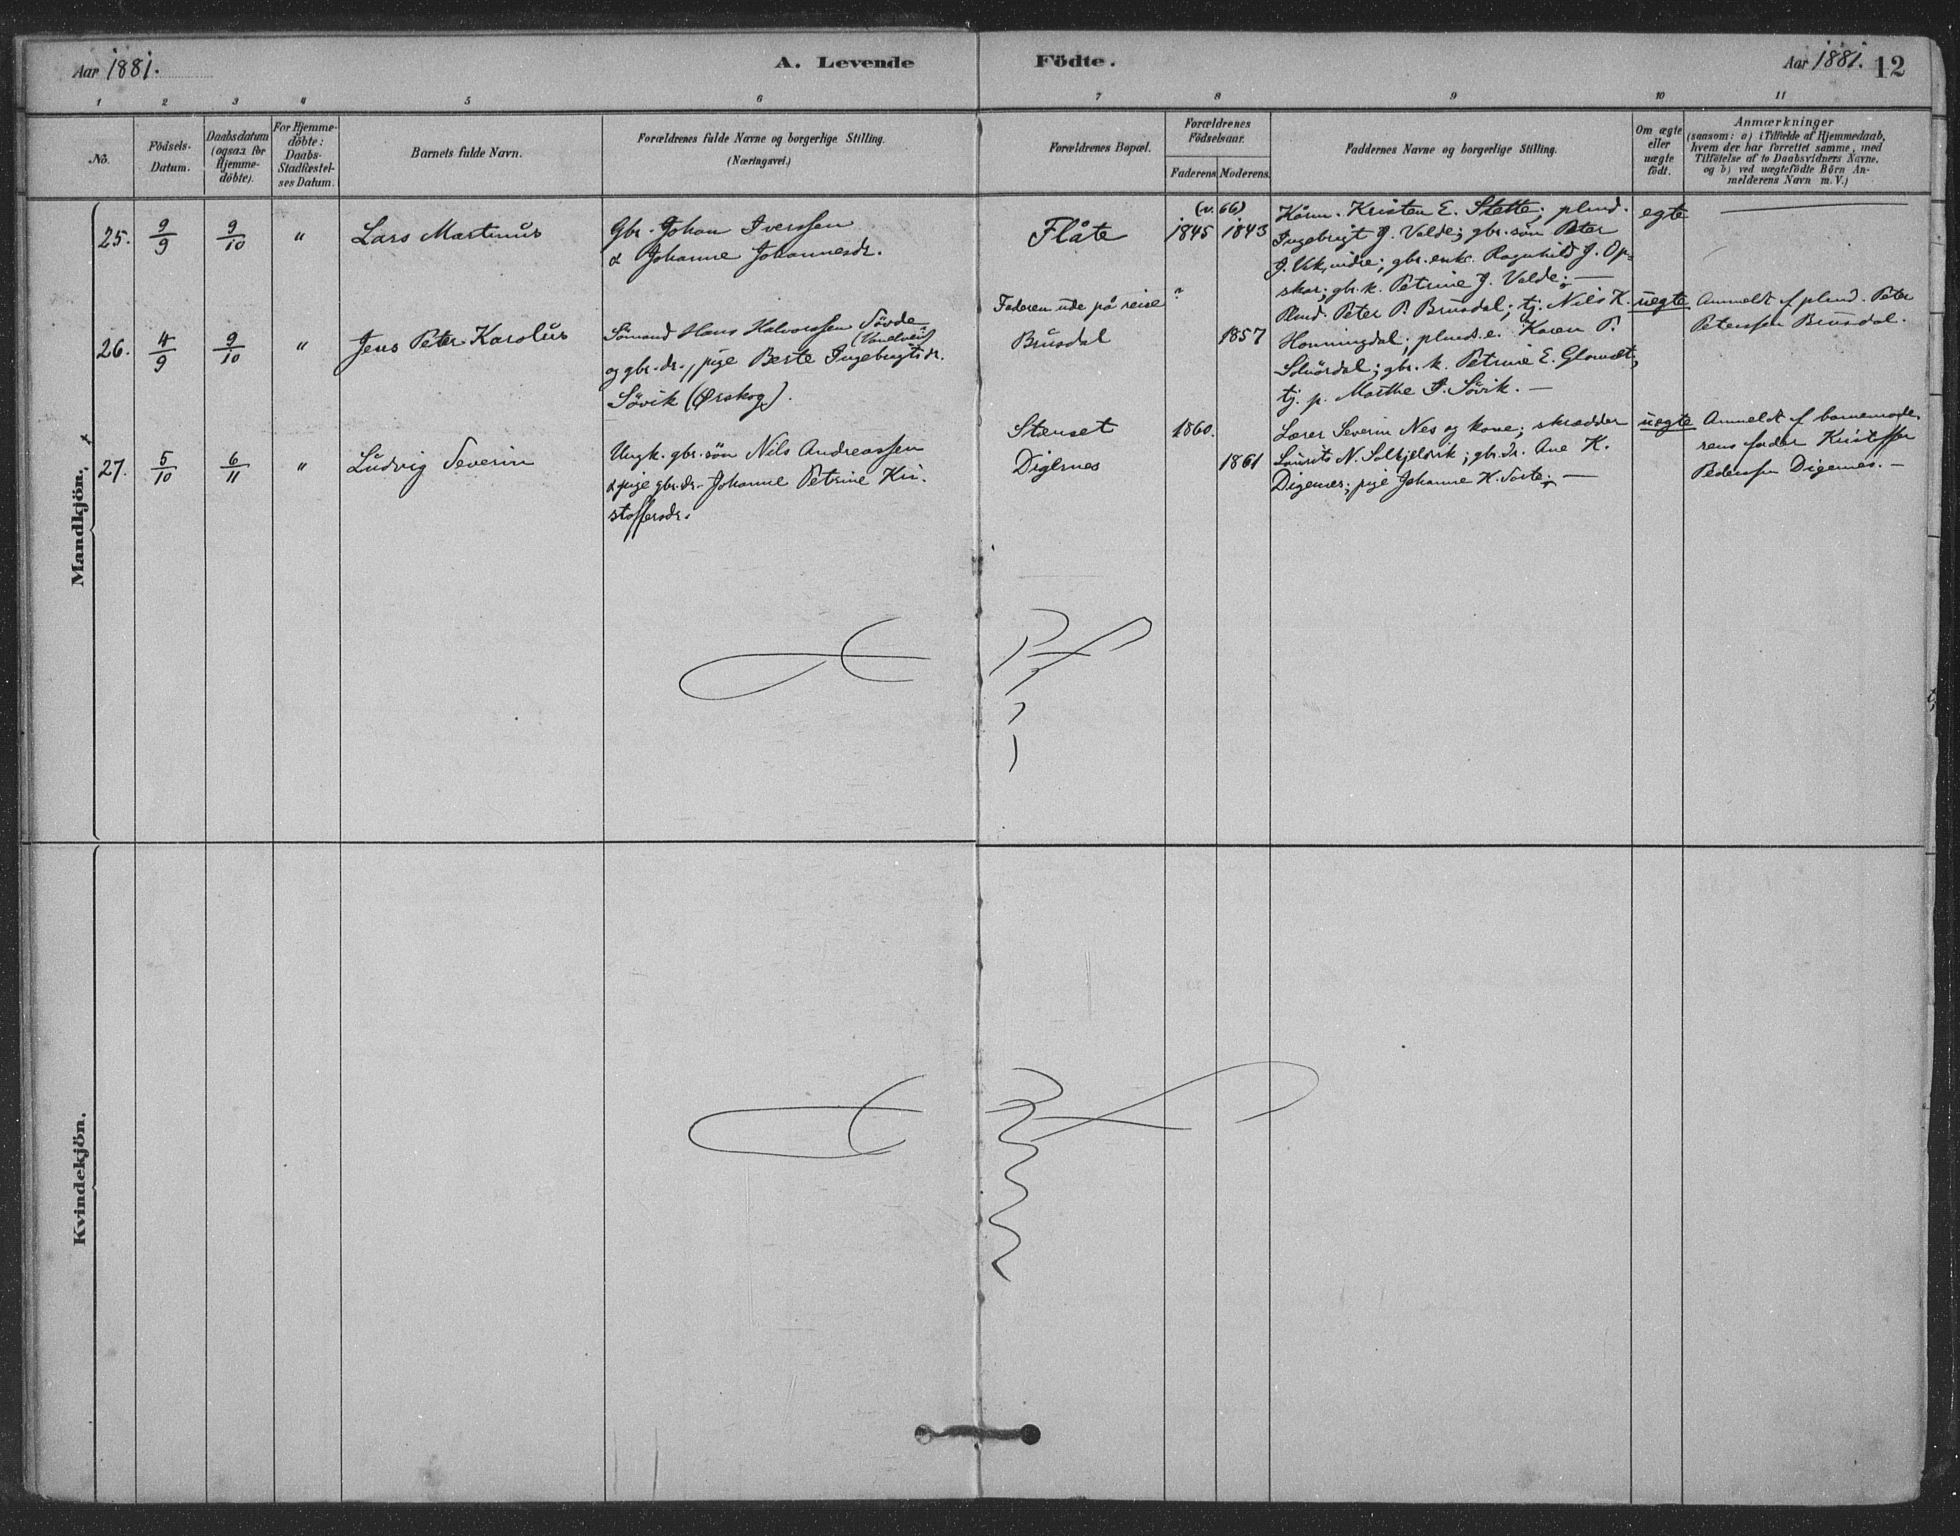 Aar 1881.
A. Levende
Födte.
Aar 1881. 12
1 2 3 4 5 6 7 8 9 10 11
No.
Födsels-
Datum.
Daabsdatum
(ogsaa for
Hjemme-
döbte).
For Hjemme-
döbte:
Daabs-
Stadfæstel-
ses Datum.
Barnets fulde Navn.
Forældrenes fulde Navne og borgerlige Stilling.
(Næringsvei.)
Forældrenes Bopæl.
Forældrenes
Födselsaar.
Faderens Moderens.
Faddernes Navne og borgerlige Stilling.
Om ægte
eller
uægte
födt.
Anmærkninger
(saasom: a) i Tilfælde af Hjemmedaab,
hvem der har forrettet samme, med
Tilföielse af to Daabsvidners Navne,
og b) ved uægtefödte Börn An-
melderens Navn m. V.)
Mandkjön.
25. 9/9 9/10 " Lars Martinus
Gbr. Johan Iverssen
& Johanne Johannesdr.
Flåte
(v. 66)
1845 1843
Kårm. Kristen E. Stette; plmd.
Ingebrigt J. Valde; gbr.sön Peter
J. Urk, indre; gbr. enke Ragnhild J. Op-
skar; gbr. k. Petrine J. Valde; —
egte
26. 4/9 9/10 " Jens Peter Karolus
Sömand Hans Halvorssen Sövde
(Vandven)
og gbr. dr., pige Berte Ingebrigtsdr.
Sövik (Ørskog).
Faderen ude på reise
Brusdal
? 1857
Plmd. Peter P. Brusdal; tj. Nils K.
Honningdal; plmds.e. Karen P.
gbr. k. Petrine E.
tj. p. Marthe I. Sövik. —
uegte
Anmeldt af plmd. Peter
Peterssen Brusdal.
27. 5/10 6/11 " Ludvig Severin
Ungk. gbr. sön Nils Andreassen
& pige gbr. dr. Johanne Petrine Kri-
stoffersdr.
Stenset
Digernes
1860.
1861
Lærer Severin Nes og kone; skrædder
Laurits N. Solkjelvik; gbr. dr. Ane K.
Digernes; pige Johanne K. —
uegte
Anmeldt af barnemode-
rens fader Kristoffer
Pederssen Digernes. —
Kvindekjön.